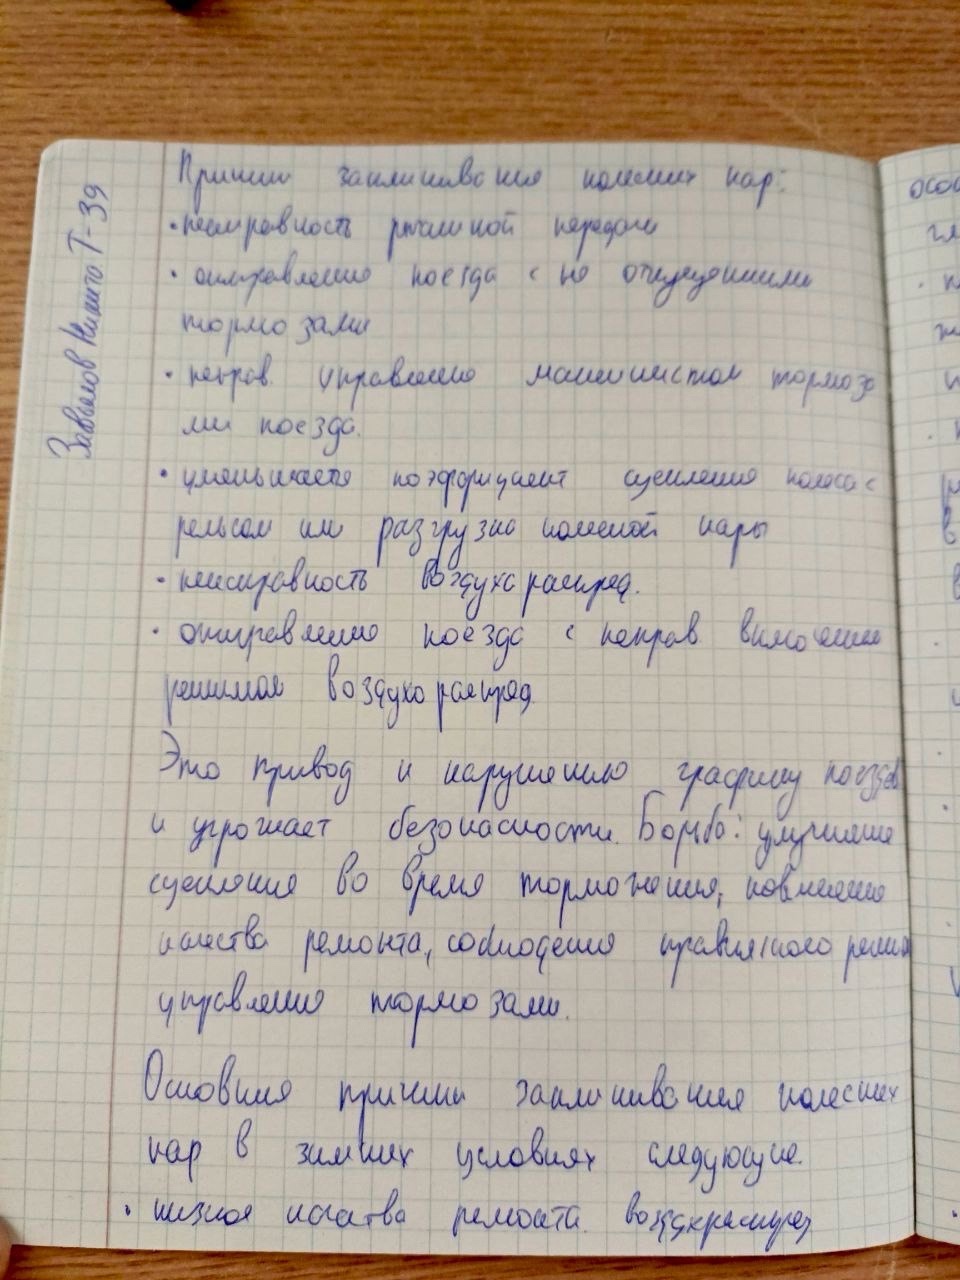 Завьялов Никита Т-39
Причин заклинивания колесних пар:
• неисправность рычажной передачи
• отправление поезда с не отпущенними
тормозами
• неправ. управление машинистом тормоза
ми поезда.
• уменьшается коэффициент сцепления колеса с
рельсом или разгрузка колесной пары
• неисправность воздухораспред.
• отправление поезда с неправ включеним
режимам воздухораспред.
Это привод к нарушению графику поездов
и угрожает безопасности. Борьба: улучшение
сцепление во время торможения, повышение
качества ремонта, соблюдения правильного режим
управление тормозами.
Основния причини заклинивания колесних
пар в зимних условиях следующие.
• низкое качества ремонта воздухораспред
осо